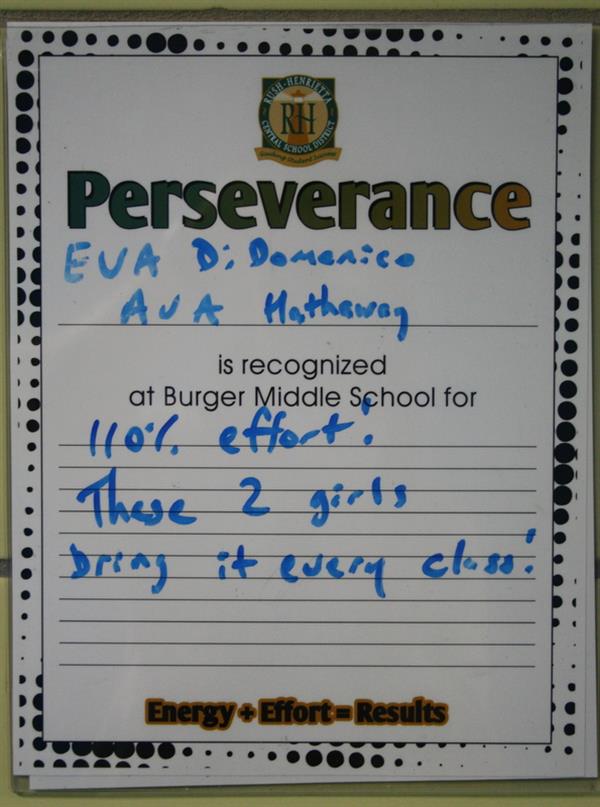 RUSH-HENRIETTA
RH
CENTRAL SCHOOL DISTRICT
Perseverance
EVA DiDomenico
AVA Hathaway
is recognized
at Burger Middle School for
110% effort!
These 2 girls
bring it every class!
Energy + Effort = Results